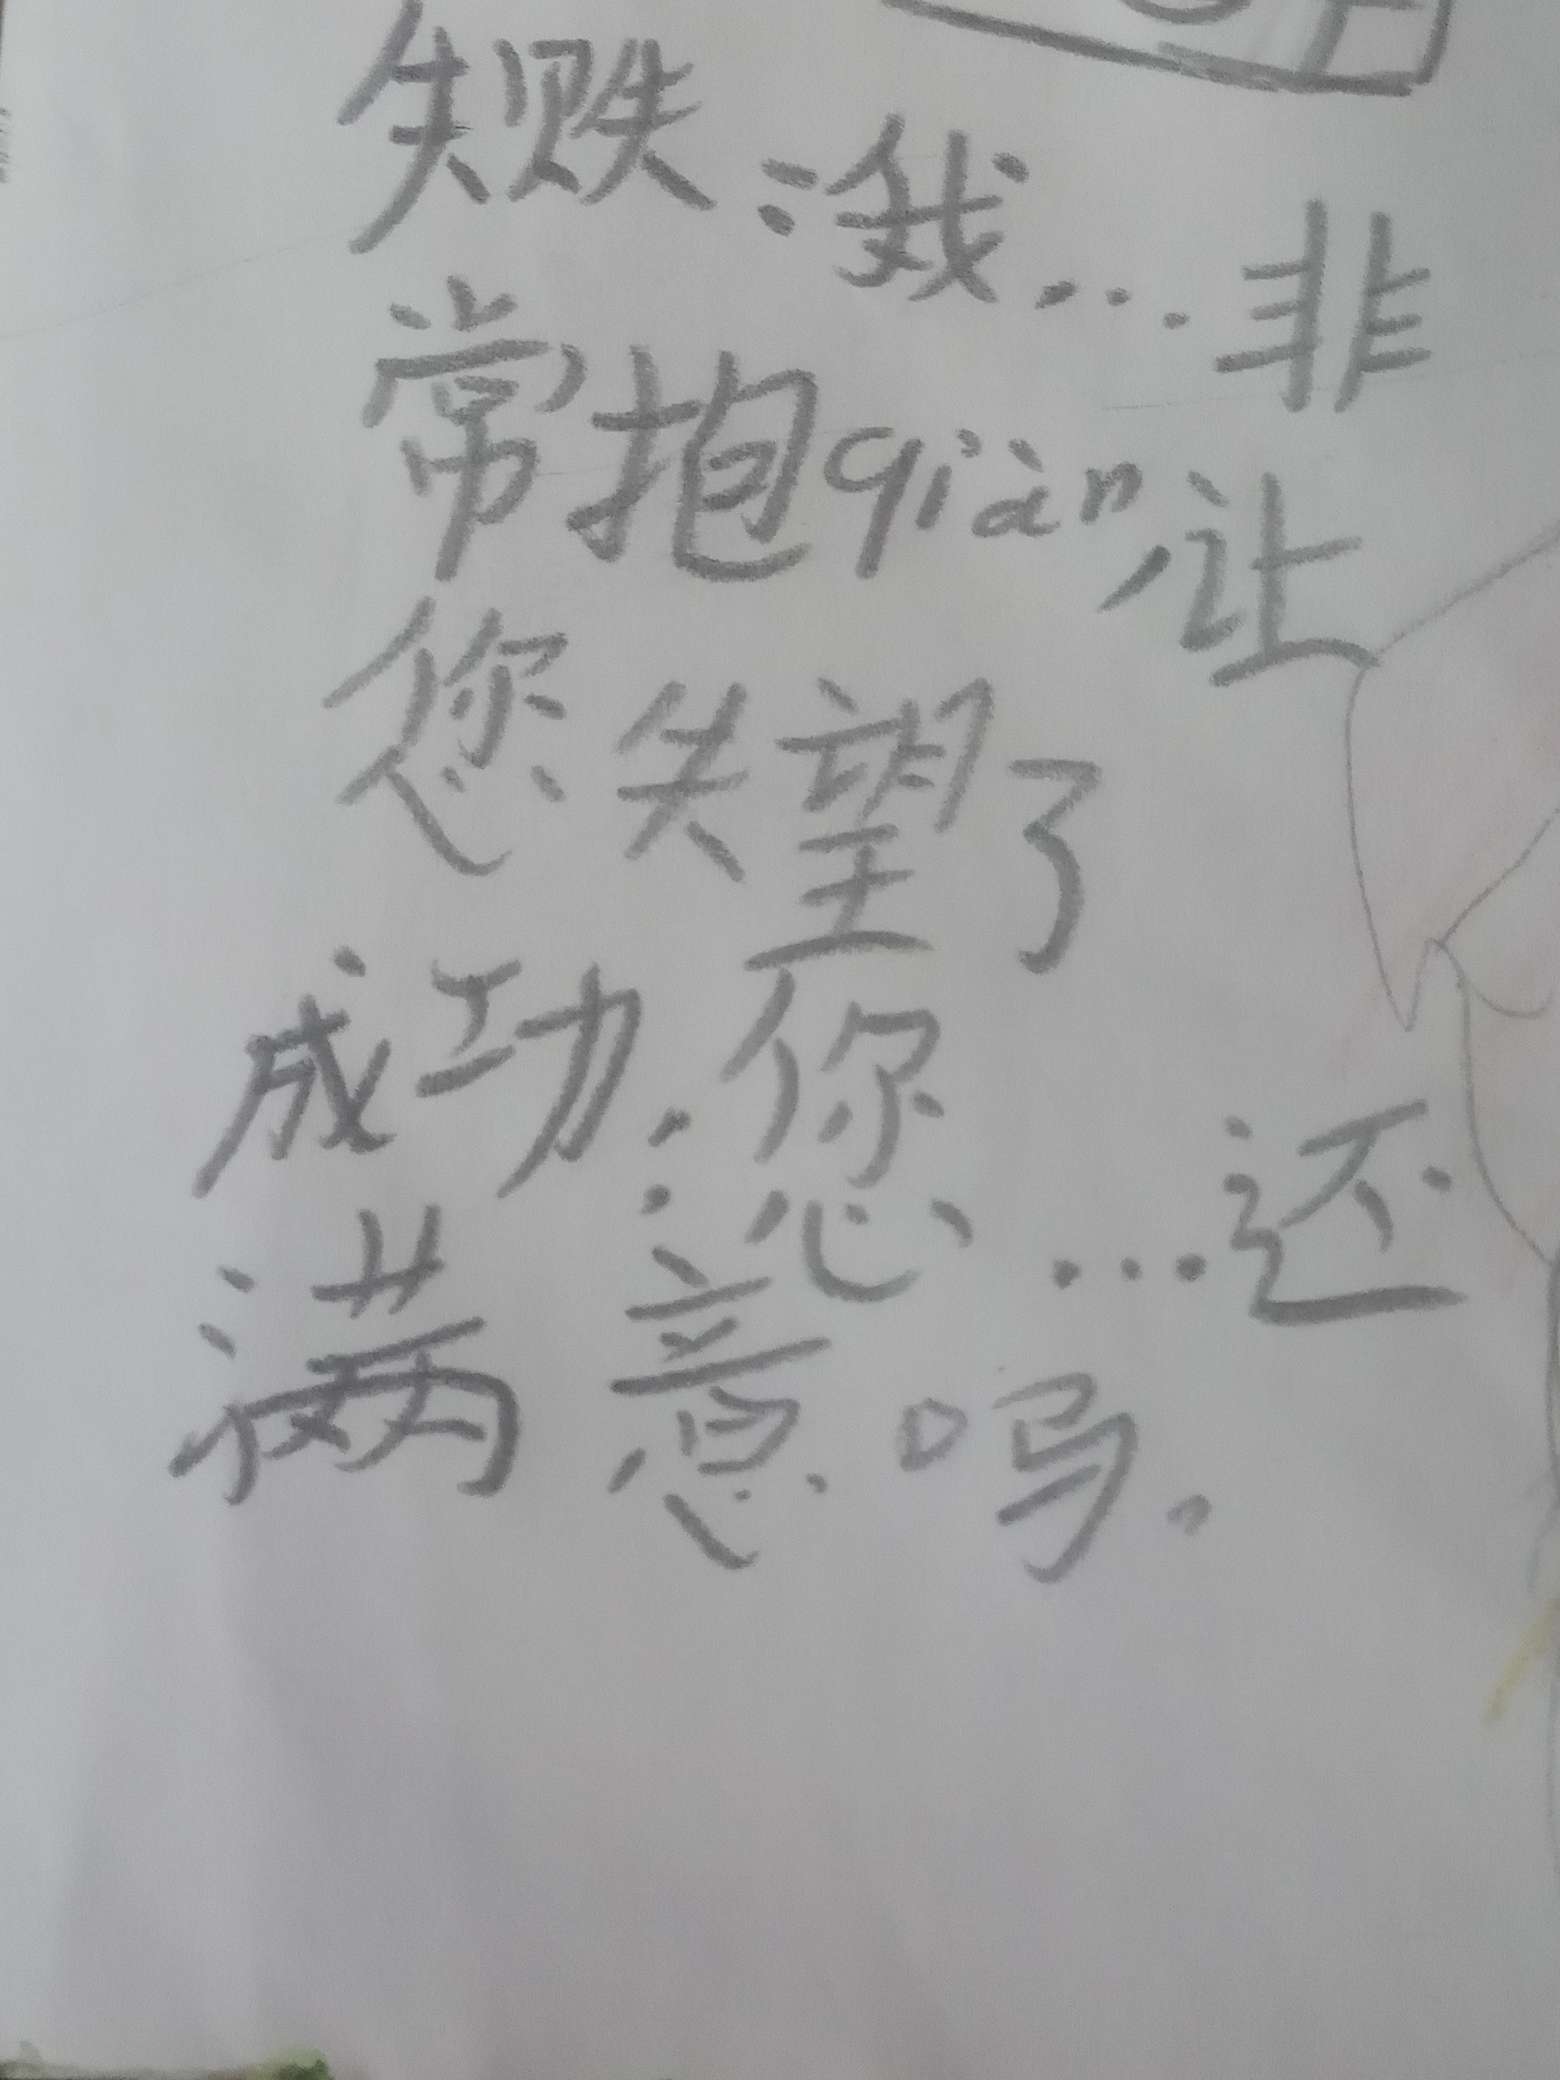 失败:我...非
常抱qiàn,让
您失望了
成功:您...还
满意吗。